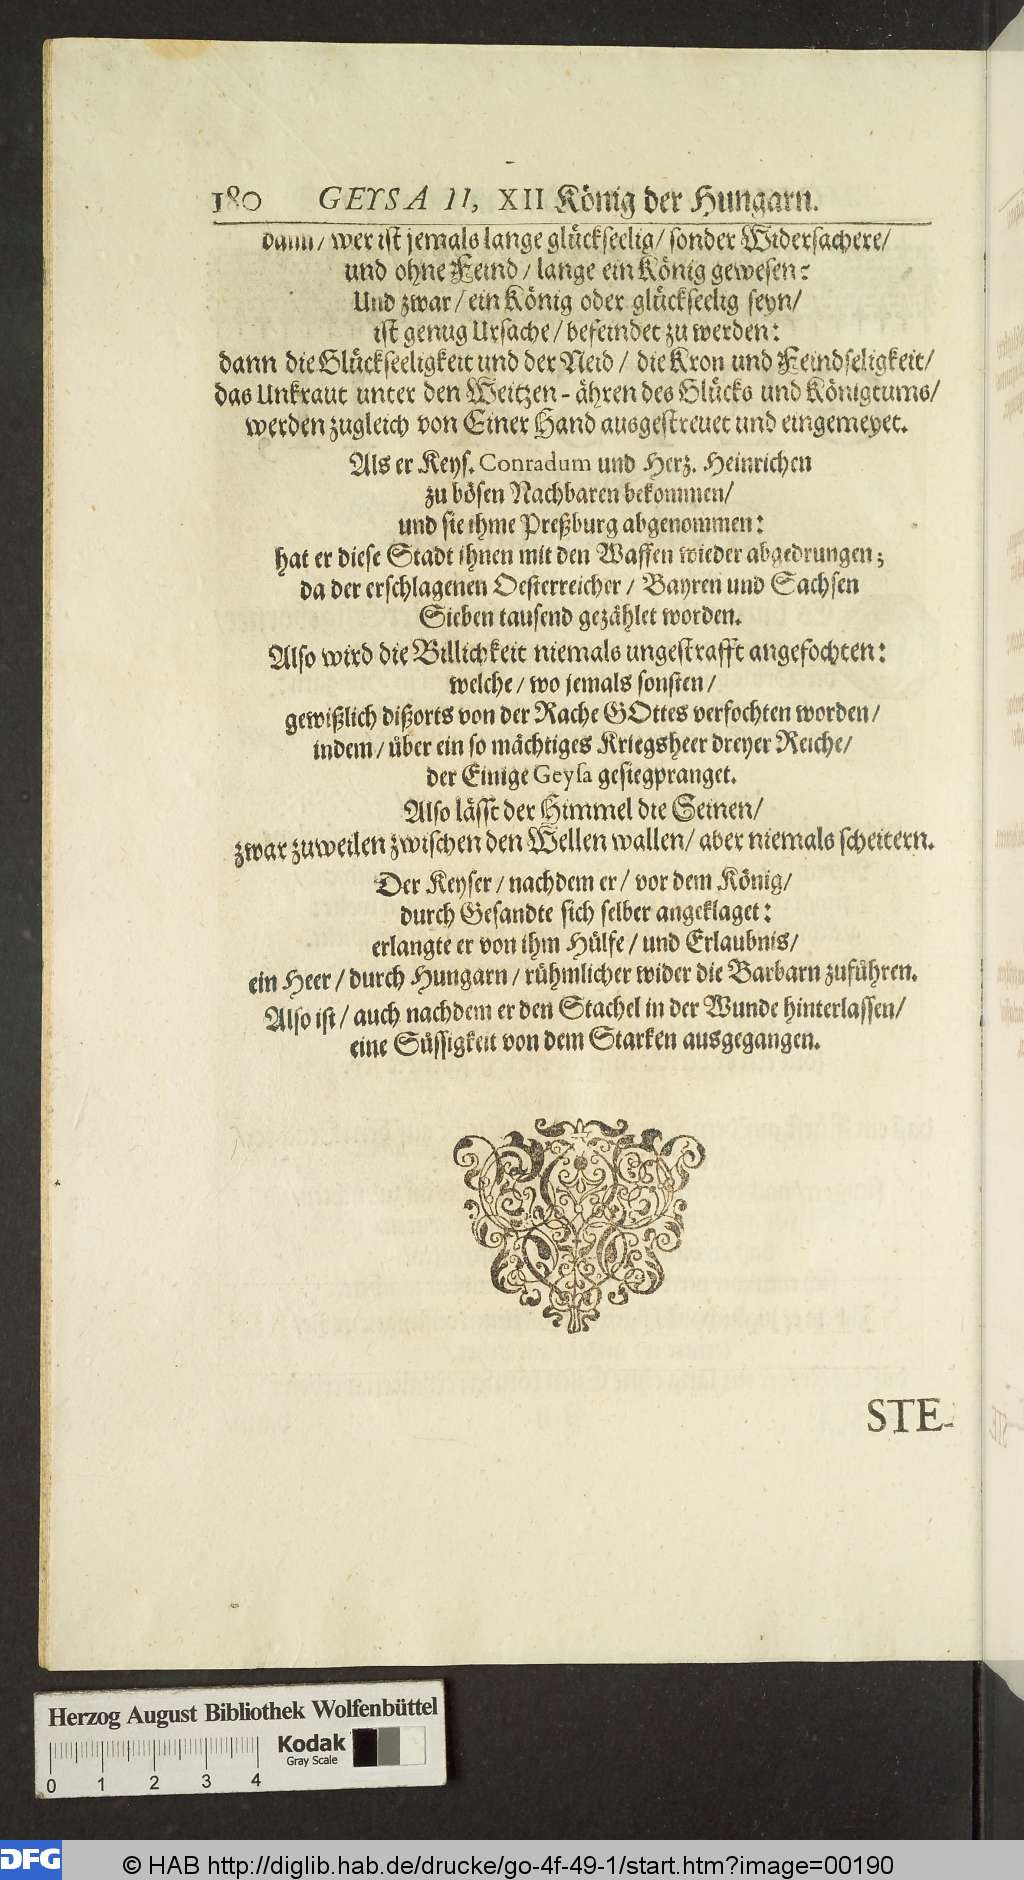 180 GEYSA II, XII König der Hungarn.
dann/ wer ist jemals lange glückseelig/ sonder Widersachere/
und ohne Feind/ lange ein König gewesen:
Und zwar/ ein König oder glückseelig seyn/
ist genug Ursache/ befeindet zu werden:
dann die Glückseeligkeit und der Neid/ die Kron und Feindseligkeit/
das Unkraut unter den Weitzen-ähren des Glücks und Königtums/
werden zugleich von Einer Hand ausgestreuet und eingemeyet.
Als er Keys. Conradum und Herz. Heinrichen
zu bösen Nachbaren bekommen/
und sie ihme Preßburg abgenommen:
hat er diese Stadt ihnen mit den Waffen wieder abgedrungen;
da der erschlagenen Oesterreicher/ Bayren und Sachsen
Sieben tausend gezählet worden.
Also wird die Billichkeit niemals ungestrafft angefochten:
welche/ wo jemals sonsten/
gewißlich dißorts von der Rache GOttes verfochten worden/
indem/ über ein so mächtiges Kriegsheer dreyer Reiche/
der Einige Geysa gesiegpranget.
Also lässt der Himmel die Seinen/
zwar zuweilen zwischen den Wellen wallen/ aber niemals scheitern.
Der Keyser/ nachdem er/ vor dem König/
durch Gesandte sich selber angeklaget:
erlangte er von ihm Hülfe/ und Erlaubnis/
ein Heer/ durch Hungarn/ rühmlicher wider die Barbarn zuführen.
Also ist/ auch nachdem er den Stachel in der Wunde hinterlassen/
eine Süssigkeit von dem Starken ausgegangen.
STE-
Herzog August Bibliothek Wolfenbüttel
Kodak
Gray Scale
0 1 2 3 4
DFG
© HAB http://diglib.hab.de/drucke/go-4f-49-1/start.htm?image=00190